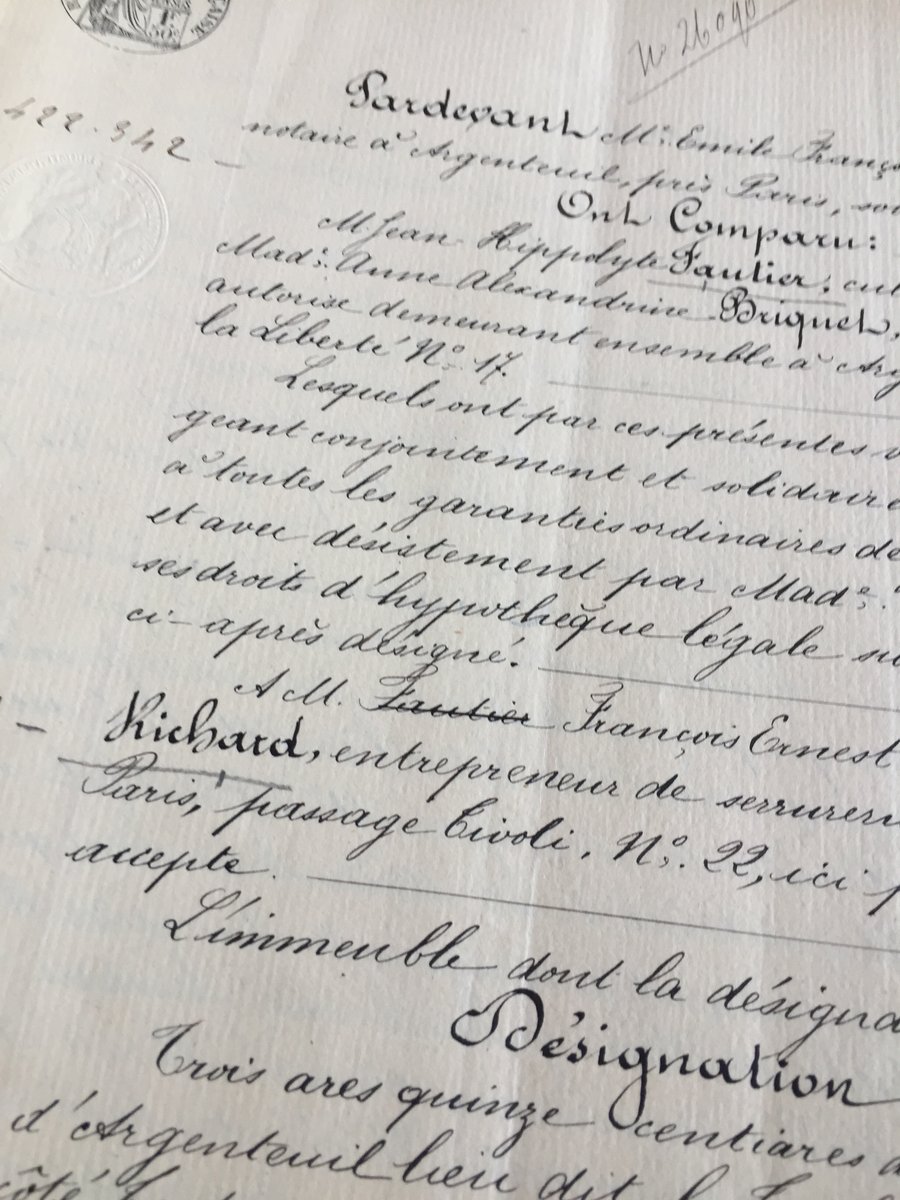 AISE
50c
No 26090
422.342
Pardevant Me. Emile Franço
notaire à Argenteuil, près Paris, sou
Ont Comparu:
M Jean Hippolyte Fautier, cul
Made. Anne Alexandrine Briquet,
autorise demeurant ensemble à Arg
la Liberté No. 17.
Lesquels ont par ces présentes v
geant conjointement et solidaire
à toutes les garanties ordinaires de
et avec désistement par Made.
ses droits d'hypothèque légale su
ci-après désigné.
A M. Fautier François Ernest
Richard, entrepreneur de serrurer
Paris, passage Tivoli, No. 22, ici p
accepte.
L'immeuble dont la désigna
Désignation
Trois ares quinze centiares
d'Argenteuil lieu dit
côté